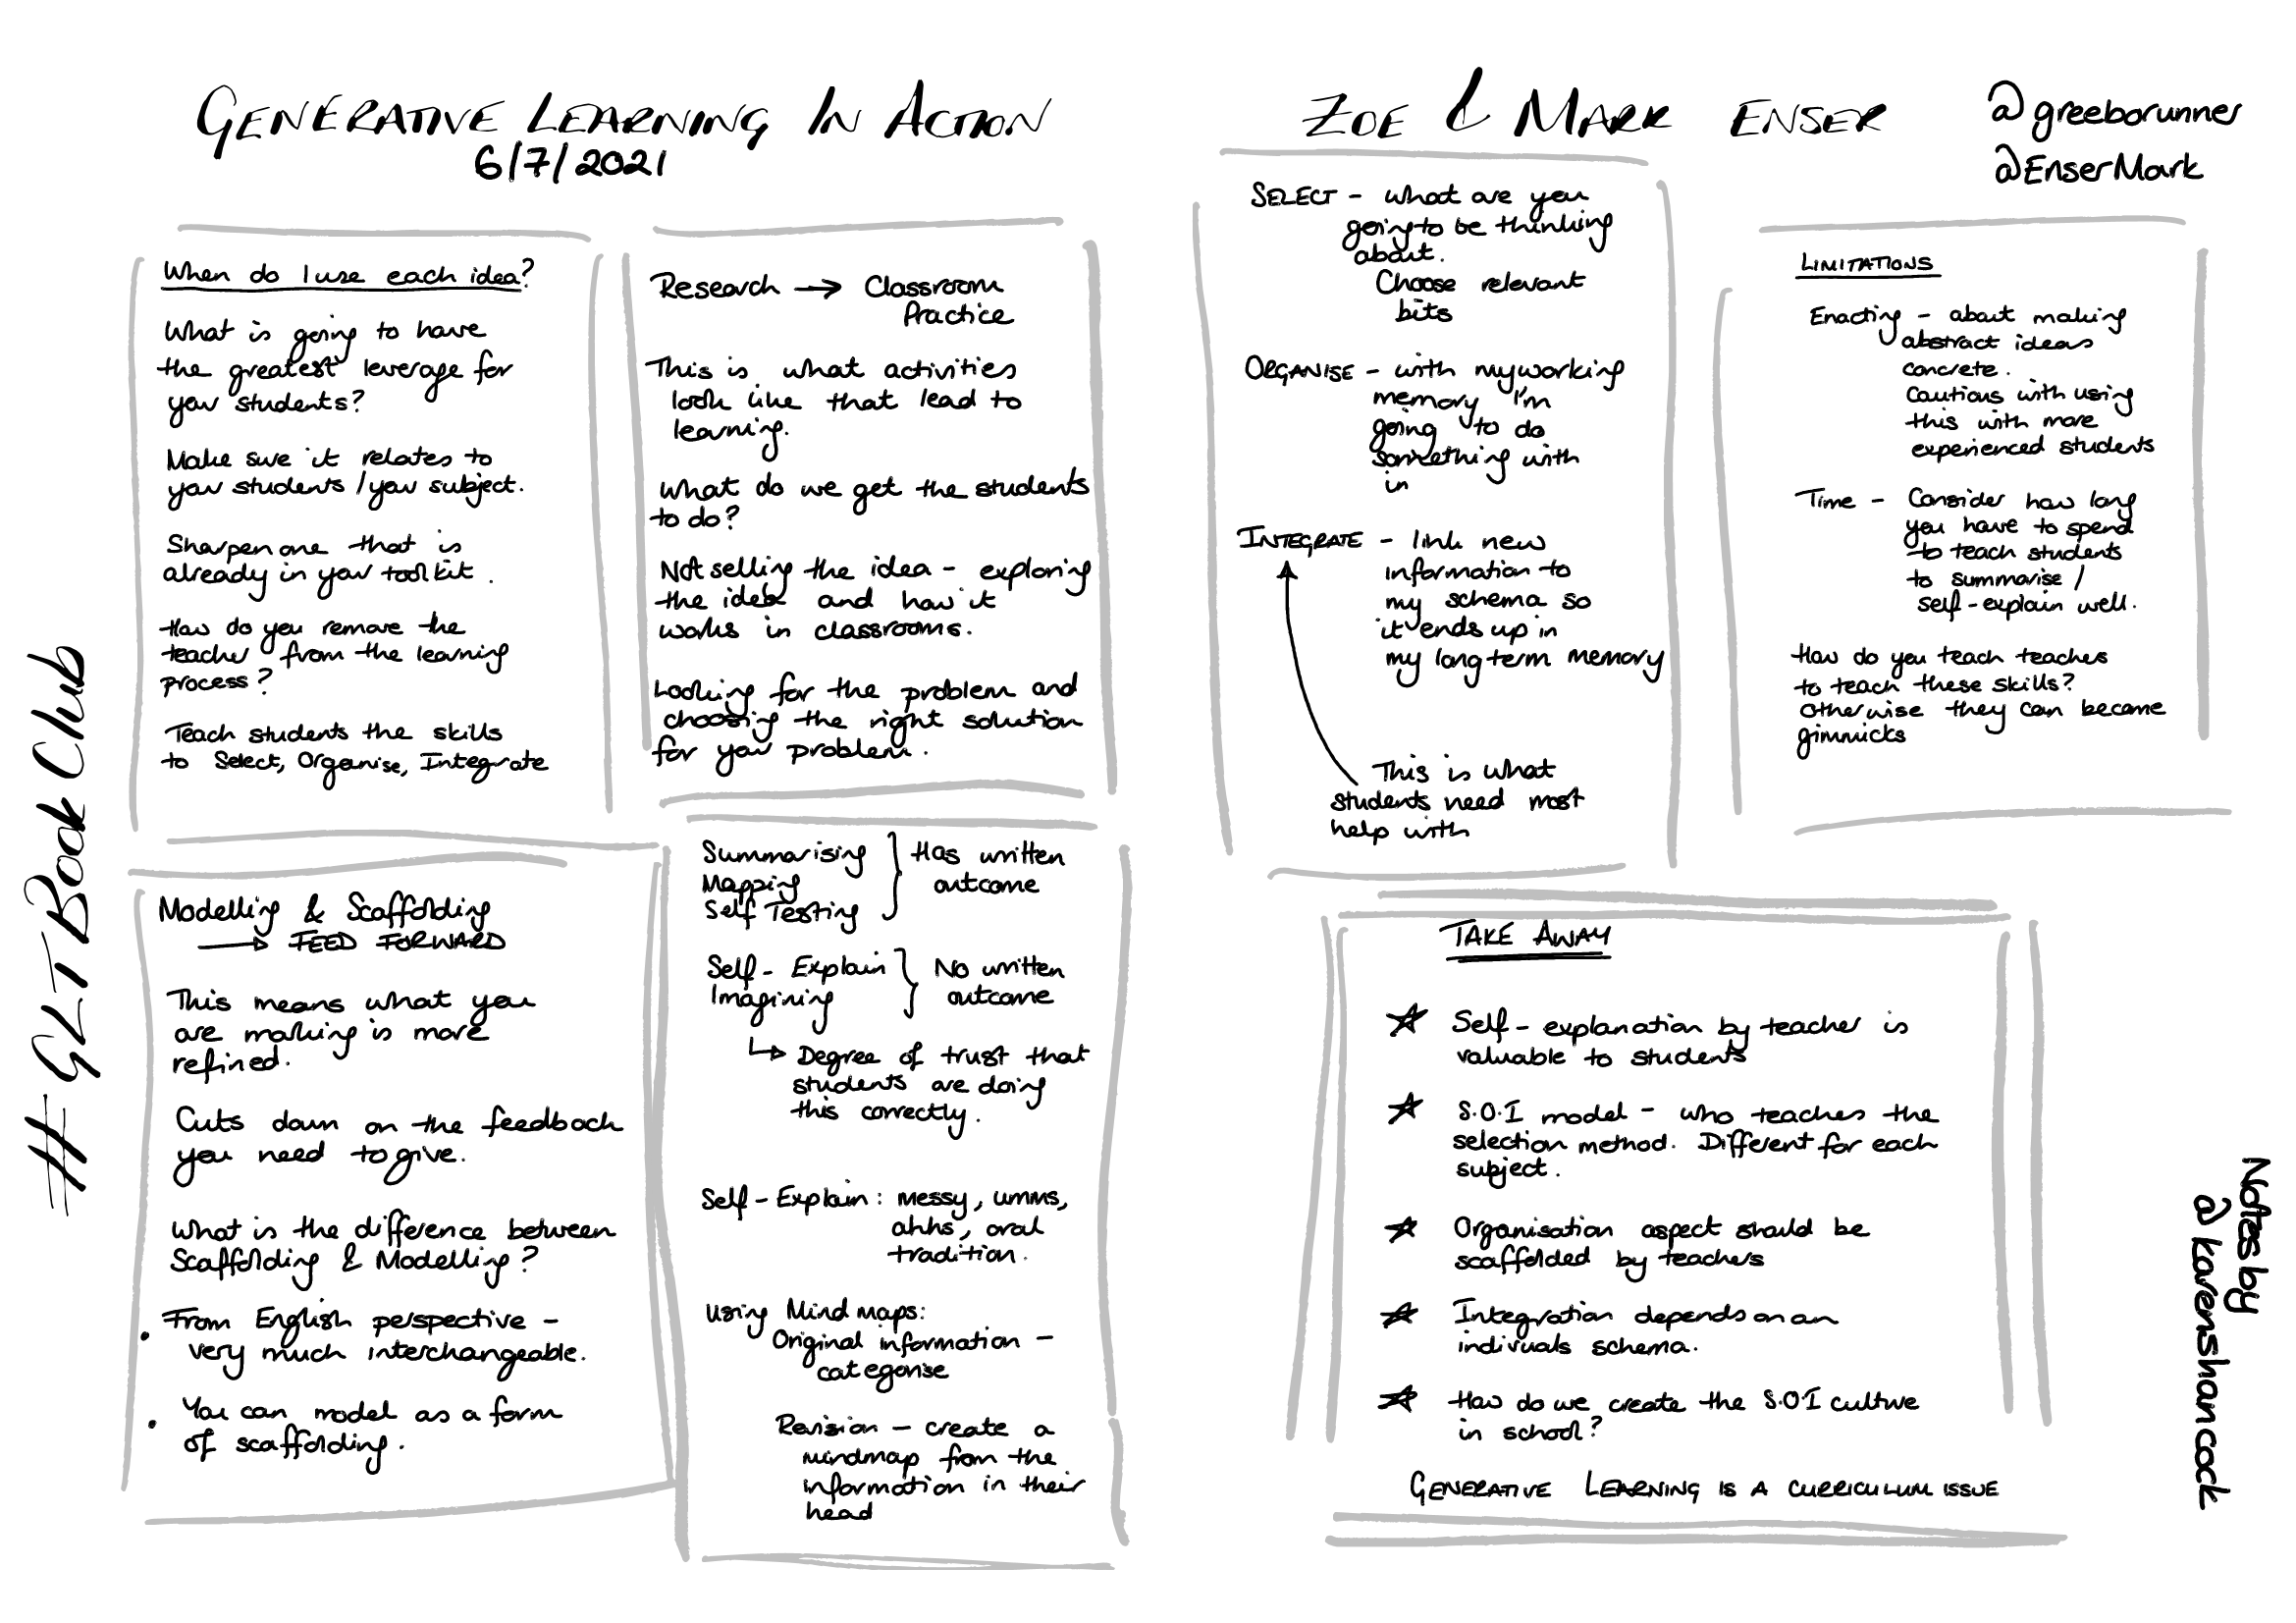 GENERATIVE LEARNING IN ACTION
6/7/2021
ZOE & MARK ENSER
@greeborunner
@EnserMark
# GLT Book Club
When do I use each idea?
What is going to have
the greatest leverage for
your students?
Make sure it relates to
your students / your subject.
Sharpen one that is
already in your toolkit.
How do you remove the
teacher from the learning
process?
Teach students the skills
to Select, Organise, Integrate
Research → Classroom
Practice
This is what activities
look like that lead to
learning.
What do we get the students
to do?
Not selling the idea - exploring
the idea and how it
works in classrooms.
Looking for the problem and
choosing the right solution
for your problem.
Modelling & Scaffolding
→ FEED FORWARD
This means what you
are marking is more
refined.
Cuts down on the feedback
you need to give.
What is the difference between
Scaffolding & Modelling?
• From English perspective -
very much interchangeable.
• You can model as a form
of scaffolding.
Summarising } Has written
Mapping outcome
Self Testing
Self-Explain } No written
Imagining outcome
↳ Degree of trust that
students are doing
this correctly.
Self-Explain: messy, umms,
ahhs, oral
tradition.
Using Mind maps:
Original information -
categorise
Revision - create a
mindmap from the
information in their
head
SELECT - what are you
going to be thinking
about.
Choose relevant
bits
ORGANISE - with my working
memory I'm
going to do
something with
in
INTEGRATE - link new
information to
my schema so
it ends up in
my long term memory
This is what
students need most
help with
LIMITATIONS
Enacting - about making
abstract ideas
concrete.
Cautious with using
this with more
experienced students
Time - Consider how long
you have to spend
to teach students
to summarise /
self-explain well.
How do you teach teachers
to teach these skills?
Otherwise they can become
gimmicks
TAKE AWAY
☆ Self-explanation by teacher is
valuable to students
☆ S.O.I model - who teaches the
selection method. Different for each
subject.
☆ Organisation aspect should be
scaffolded by teachers
☆ Integration depends on an
indivuals schema.
☆ How do we create the S.O.I culture
in school?
GENERATIVE LEARNING IS A CURRICULUM ISSUE
Notes by
@karenshancock